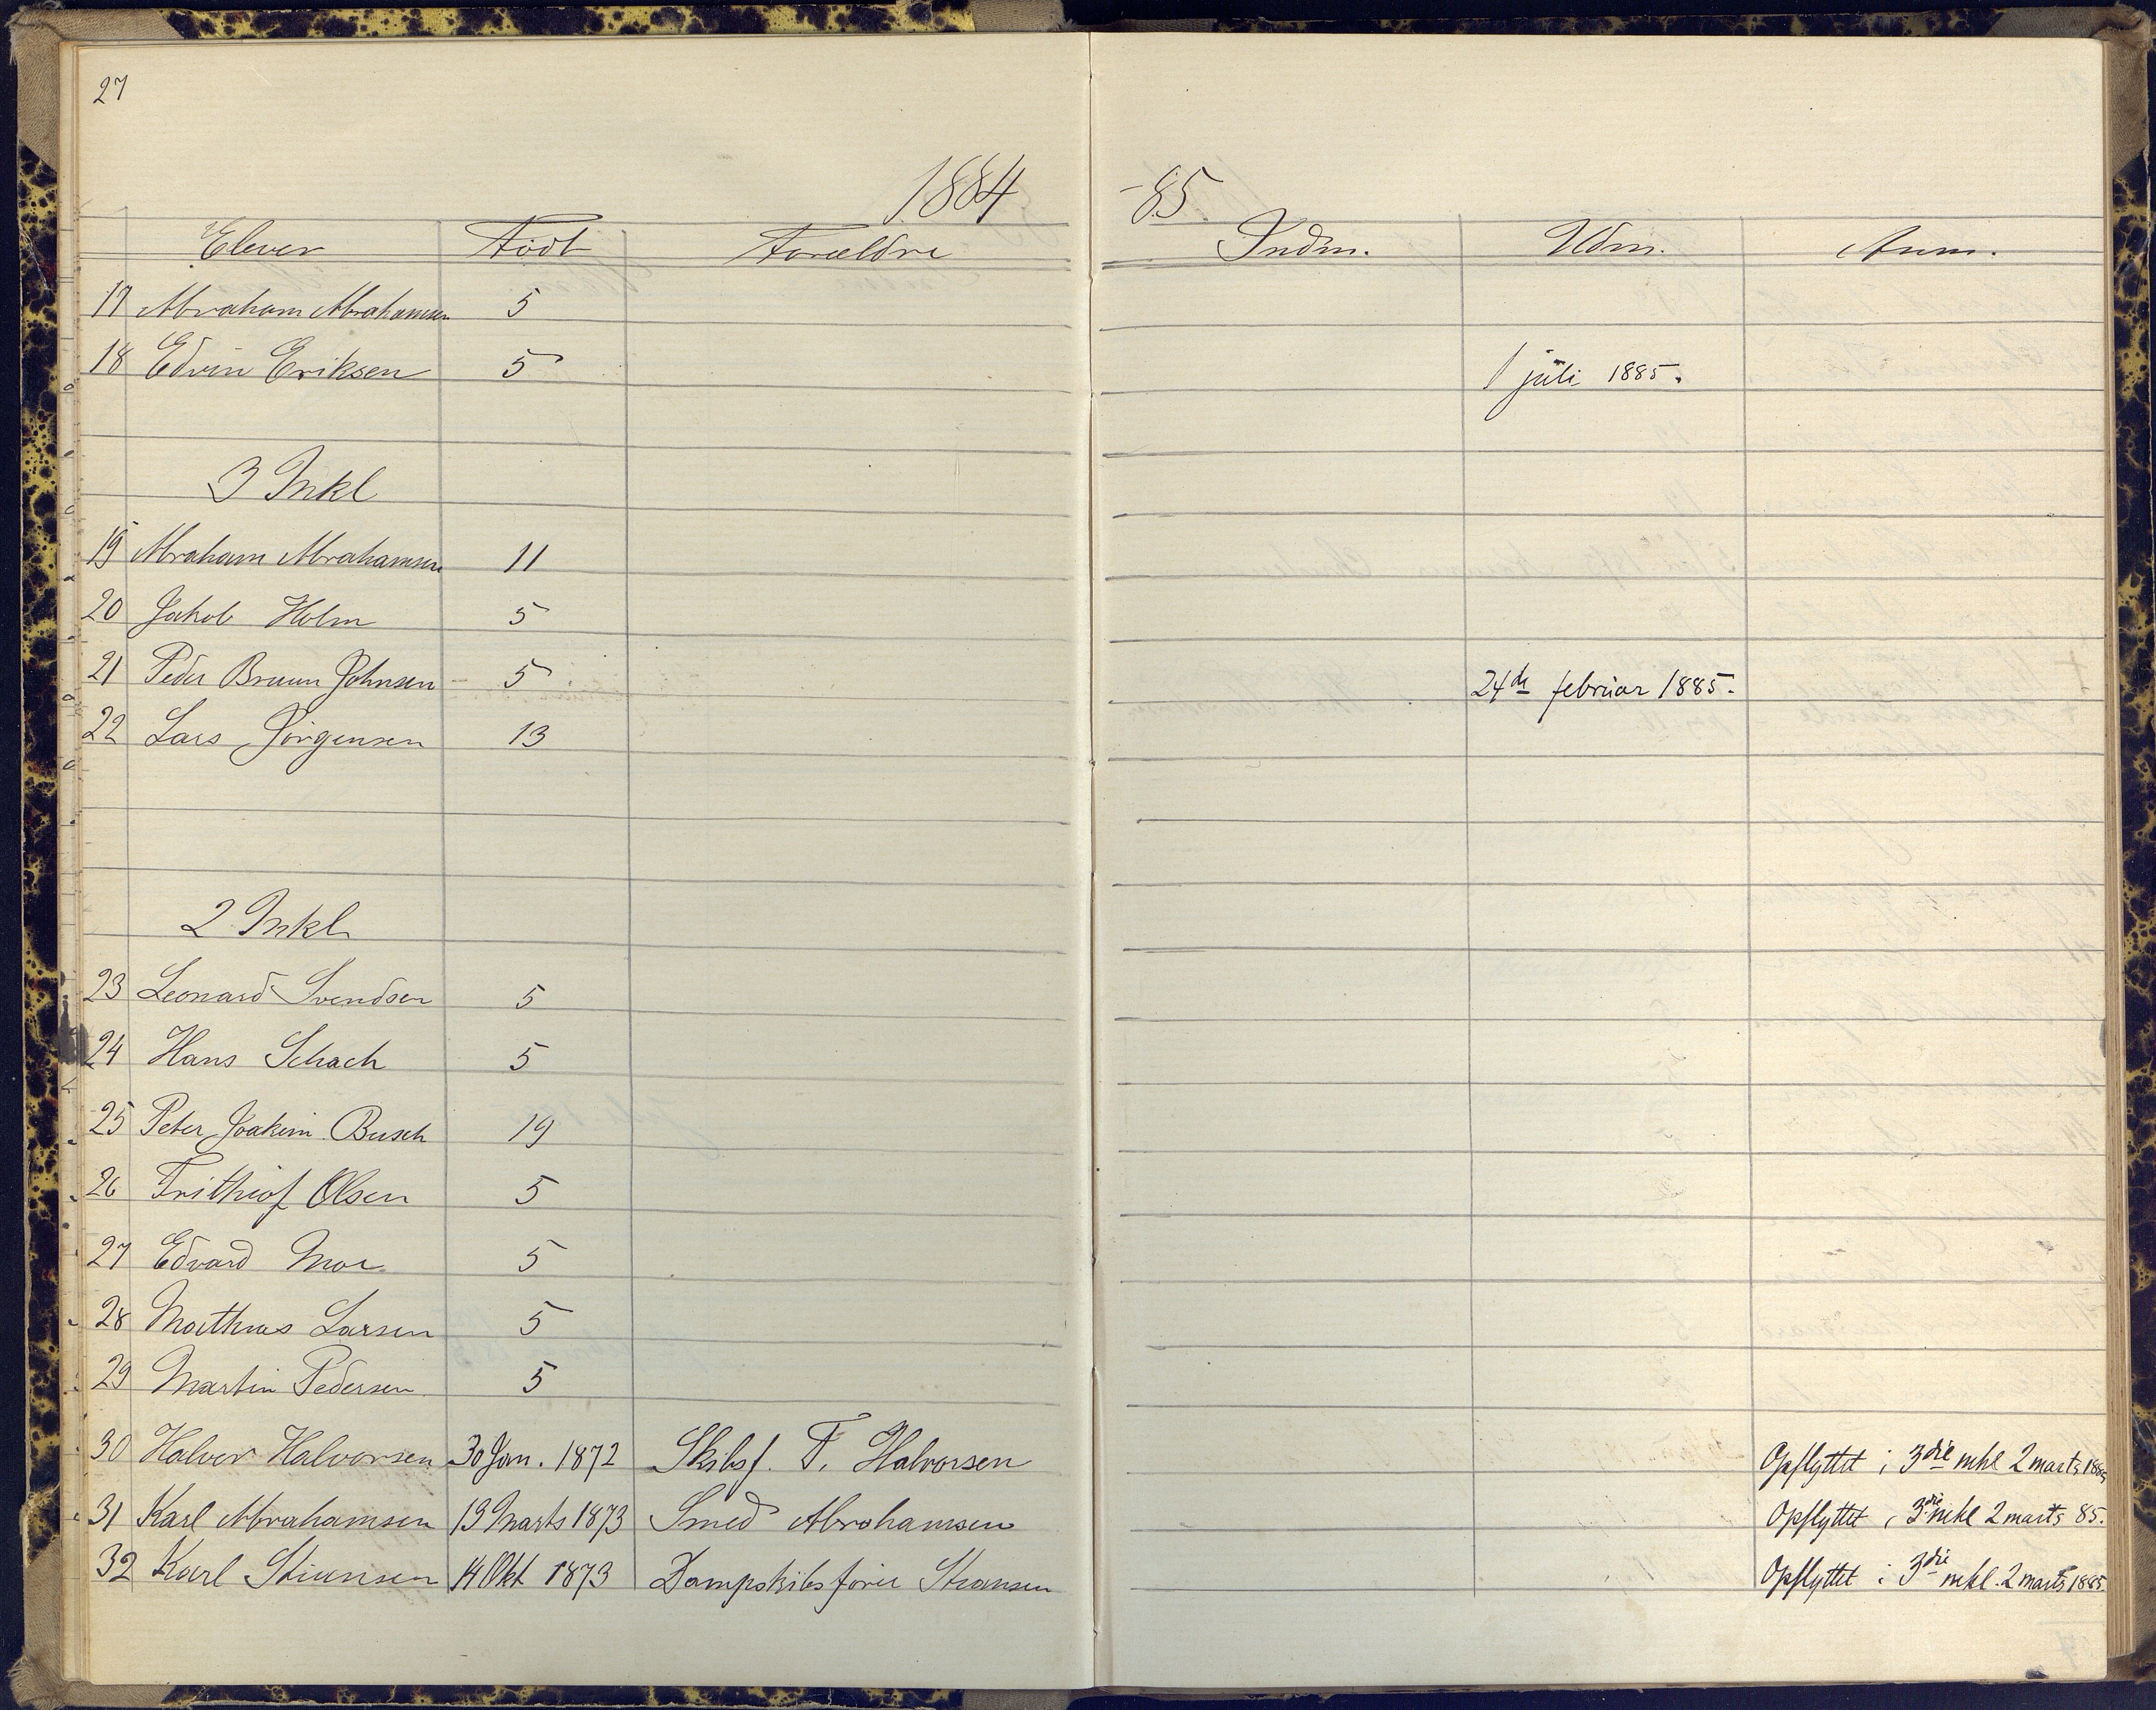 27
1884 -85
Elever Født Forældre Indm. Udm. Anm.
17 Abraham Abrahamsen 5
18 Edvin Eriksen 5 1 juli 1885.
3 Mkl
19 Abraham Abrahamsen 11
20 Jakob Holm 5
21 Peder Bruun Johnsen 5 24de februar 1885.
22 Lars Jörgensen 13
2 Mkl
23 Leonard Svendsen 5
24 Hans Schach 5
25 Peter Joakim Busch 19
26 Frithiof Olsen 5
27 Edvard Moe 5
28 Mathias Larsen 5
29 Martin Pedersen 5
30 Halvor Halvorsen 30 Jan. 1872 Skibsf. T. Halvorsen Opflyttet i 3die mkl 2 marts 1885
31 Karl Abrahamsen 13 Marts 1873 Smed Abrahamsen Opflyttet i 3die mkl 2 marts 85.
32 Karl 14 Okt 1873 Dampskibsfører Opflyttet i 3die mkl. 2 marts 1885.